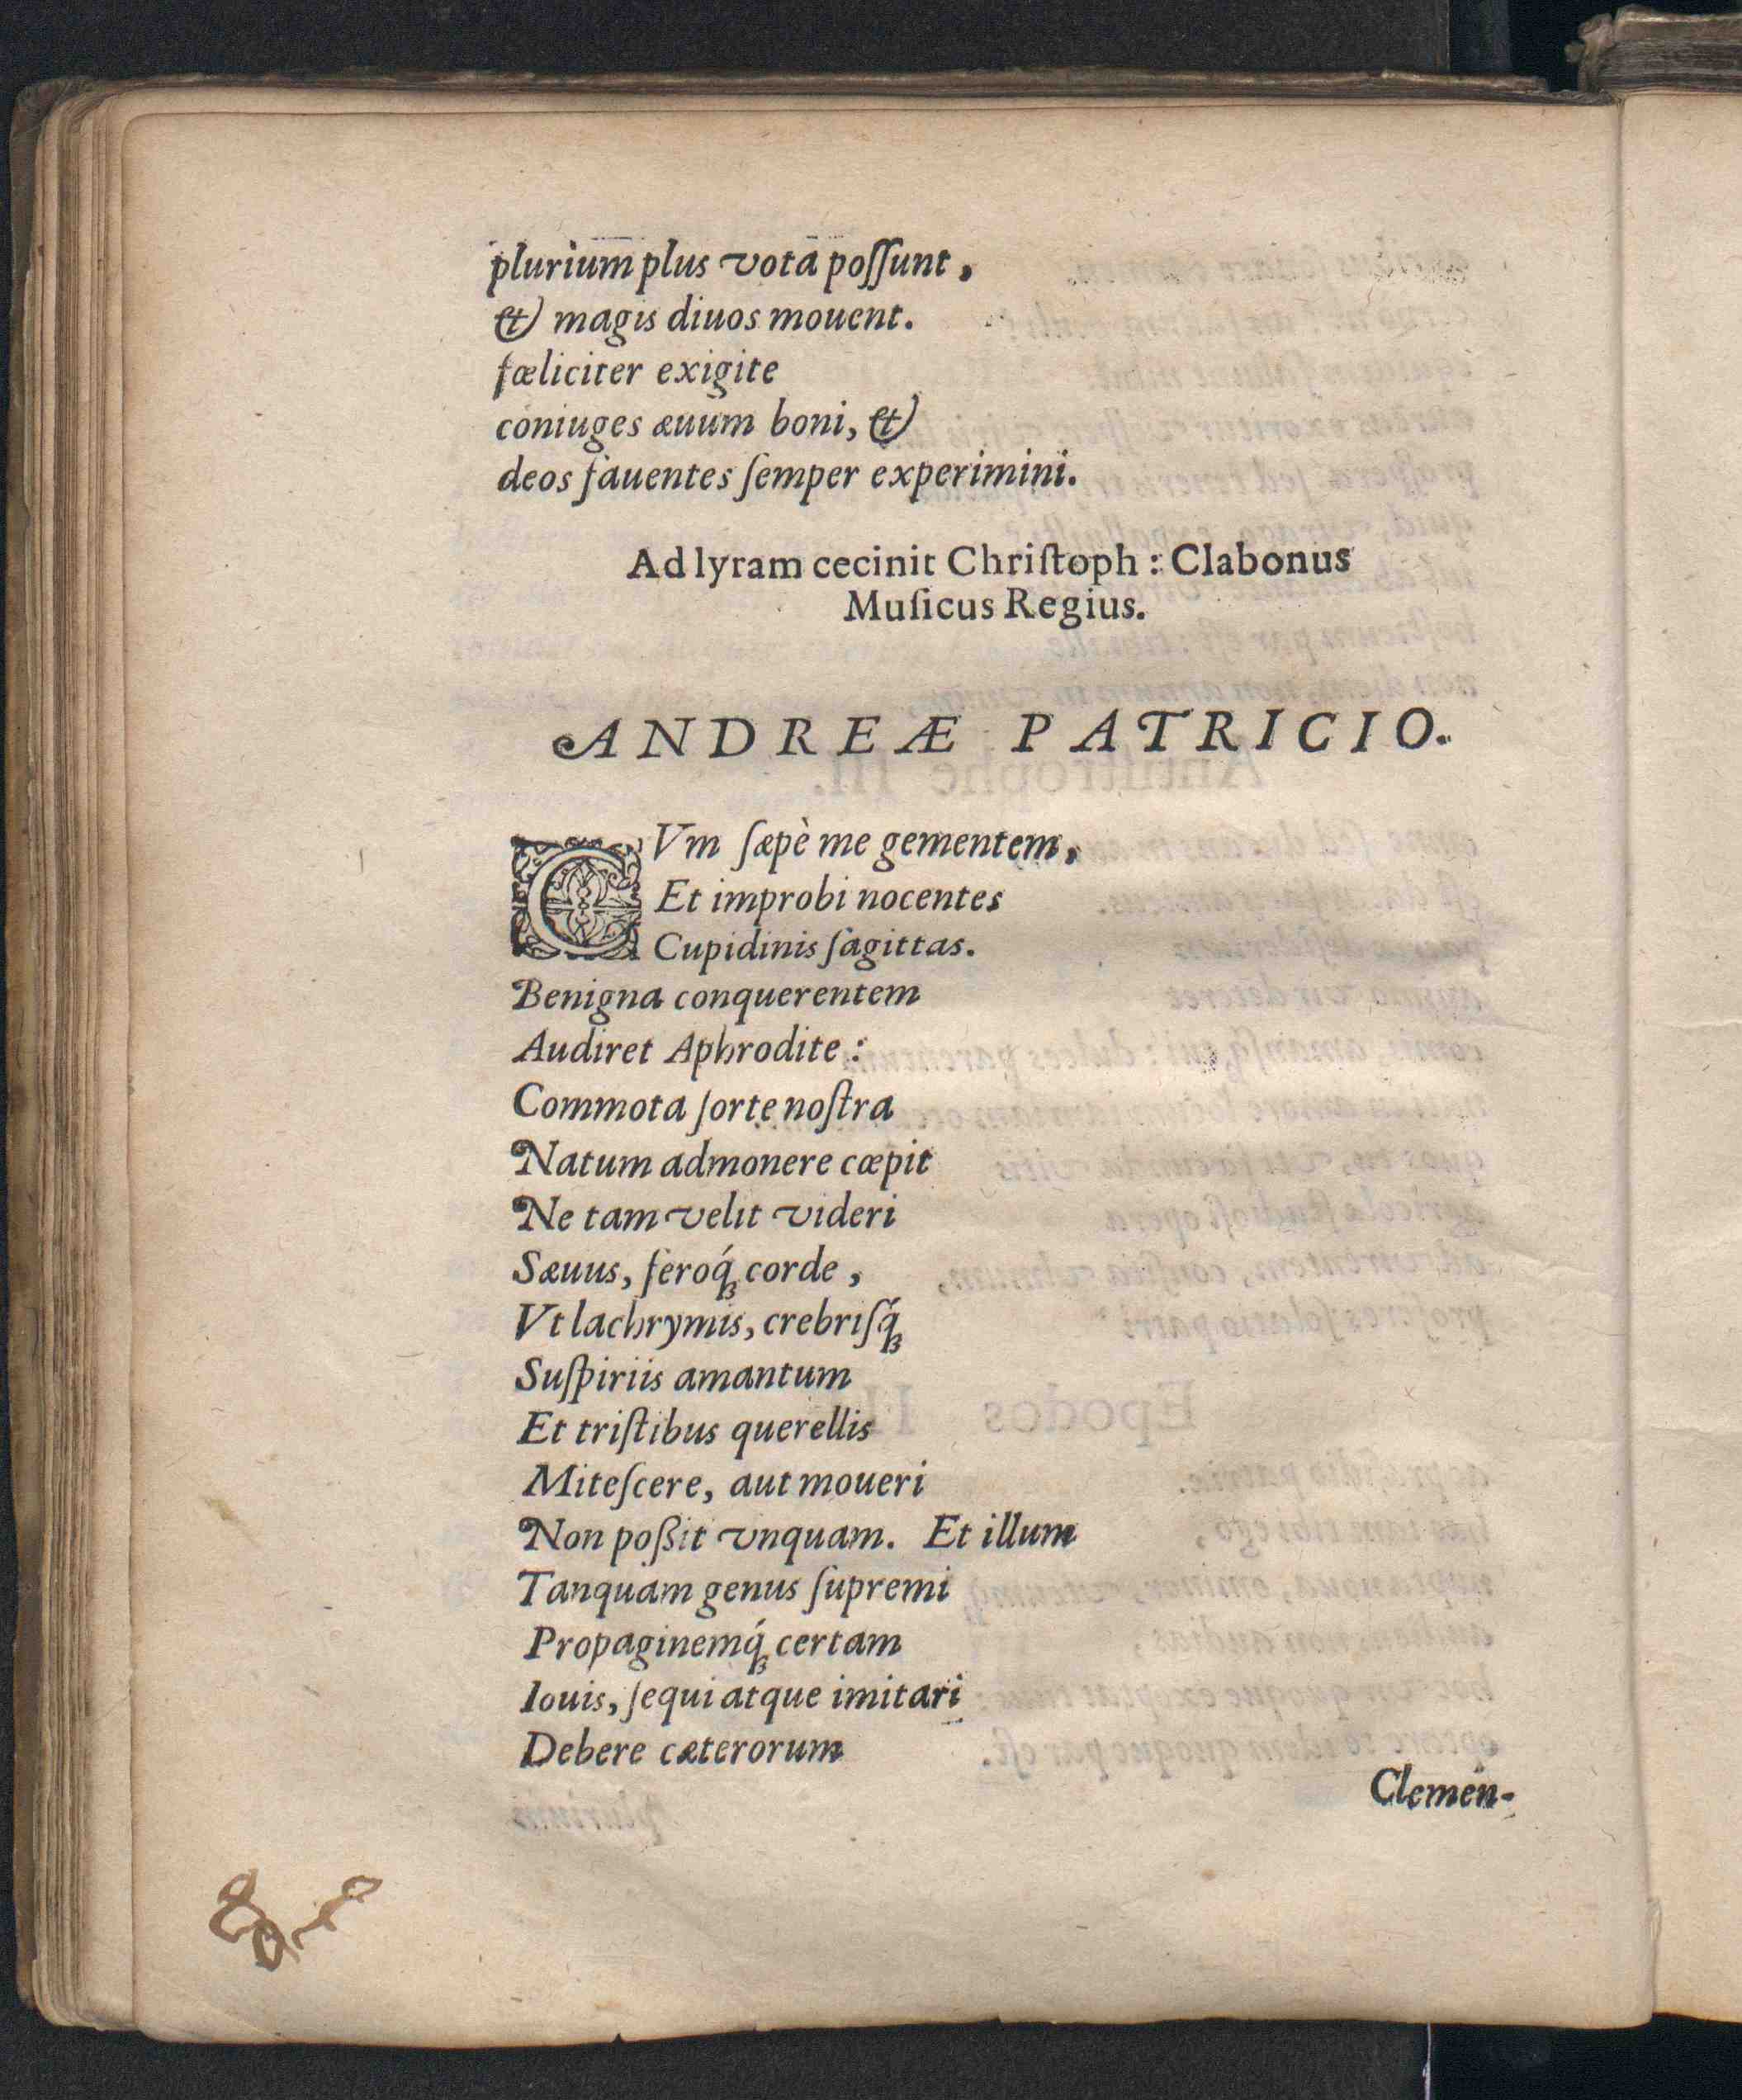 plurium plus vota poſſunt,
& magis diuos mouent.
fœliciter exigite
coniuges æuum boni, &
deos fauentes ſemper experimini.
Ad lyram cecinit Chriſtoph: Clabonus
Muſicus Regius.
ANDREÆ PATRICIO.
CVm ſæpè me gementem,
Et improbi nocentes
Cupidinis ſagittas.
Benigna conquerentem
Audiret Aphrodite:
Commota ſorte noſtra
Natum admonere cœpit
Ne tam velit videri
Sæuus, feroq́ꝫ corde,
Vt lachrymis, crebriſq́ꝫ
Suſpiriis amantum
Et triſtibus querellis
Miteſcere, aut moueri
Non poßit vnquam. Et illum
Tanquam genus ſupremi
Propaginemq́ꝫ certam
Iouis, ſequi atque imitari
Debere cæterorum
Clemen-